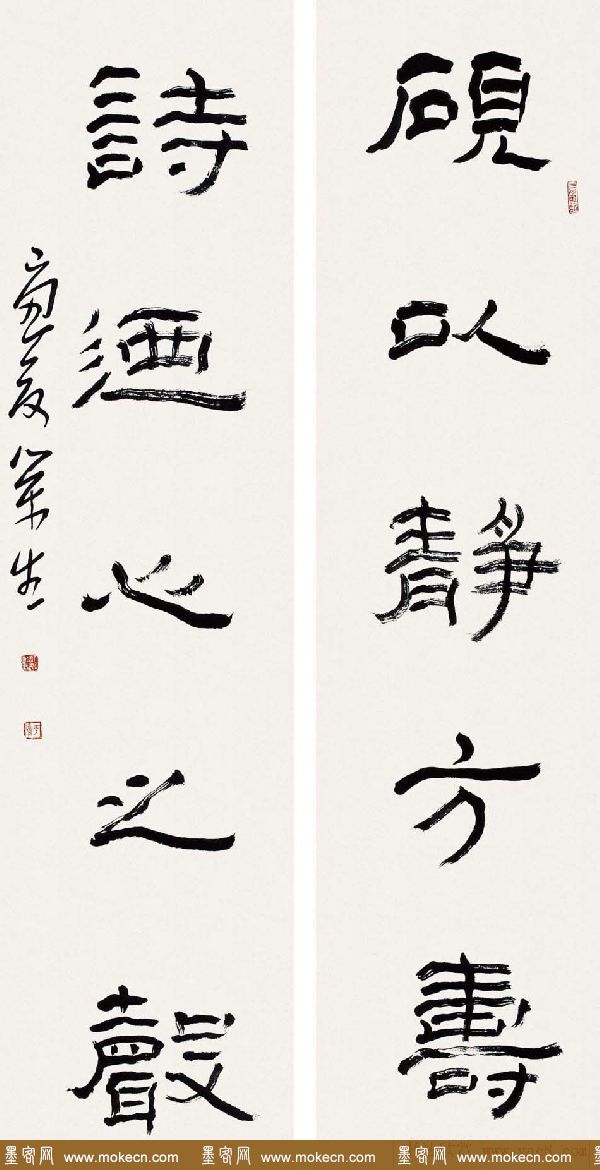 硯以靜方壽
詩迺心之聲
墨客网 www.mokecn.com 墨客网 www.mokecn.com 墨客网 www.mokecn.com